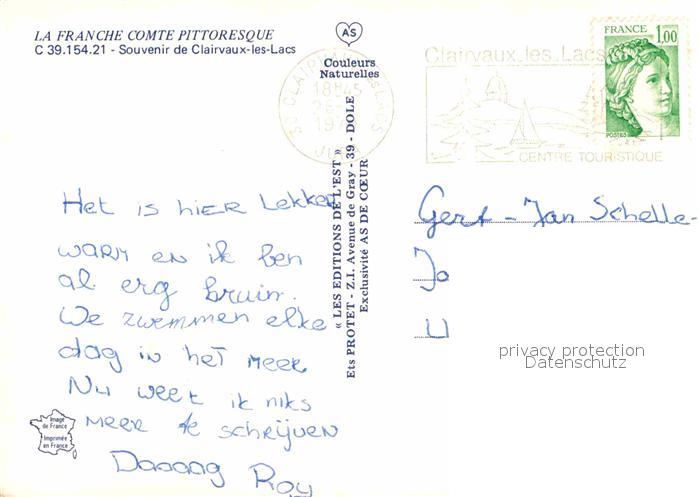 LA FRANCHE COMTE PITTORESQUE
C 39.154.21 - Souvenir de Clairvaux-les-Lacs
AS
Couleurs
Naturelles
Clairvaux.les.Lacs
CENTRE TOURISTIQUE
FRANCE 1,00
POSTES
18H45
JURA
Het is hier Lekker
warm en ik ben
al erg bruin.
We zwemmen elke
dag in het meer
Nu weet ik niks
meer te schrijven
Daaaag Roy
« LES EDITIONS DE L'EST »
Ets PROTET - Z.I. Avenue de Gray - 39 - DOLE
Exclusivité AS DE CŒUR
Gert - Jan Schelle-
Jo
U
privacy protection
Datenschutz
Image
de France
Imprimée
en France